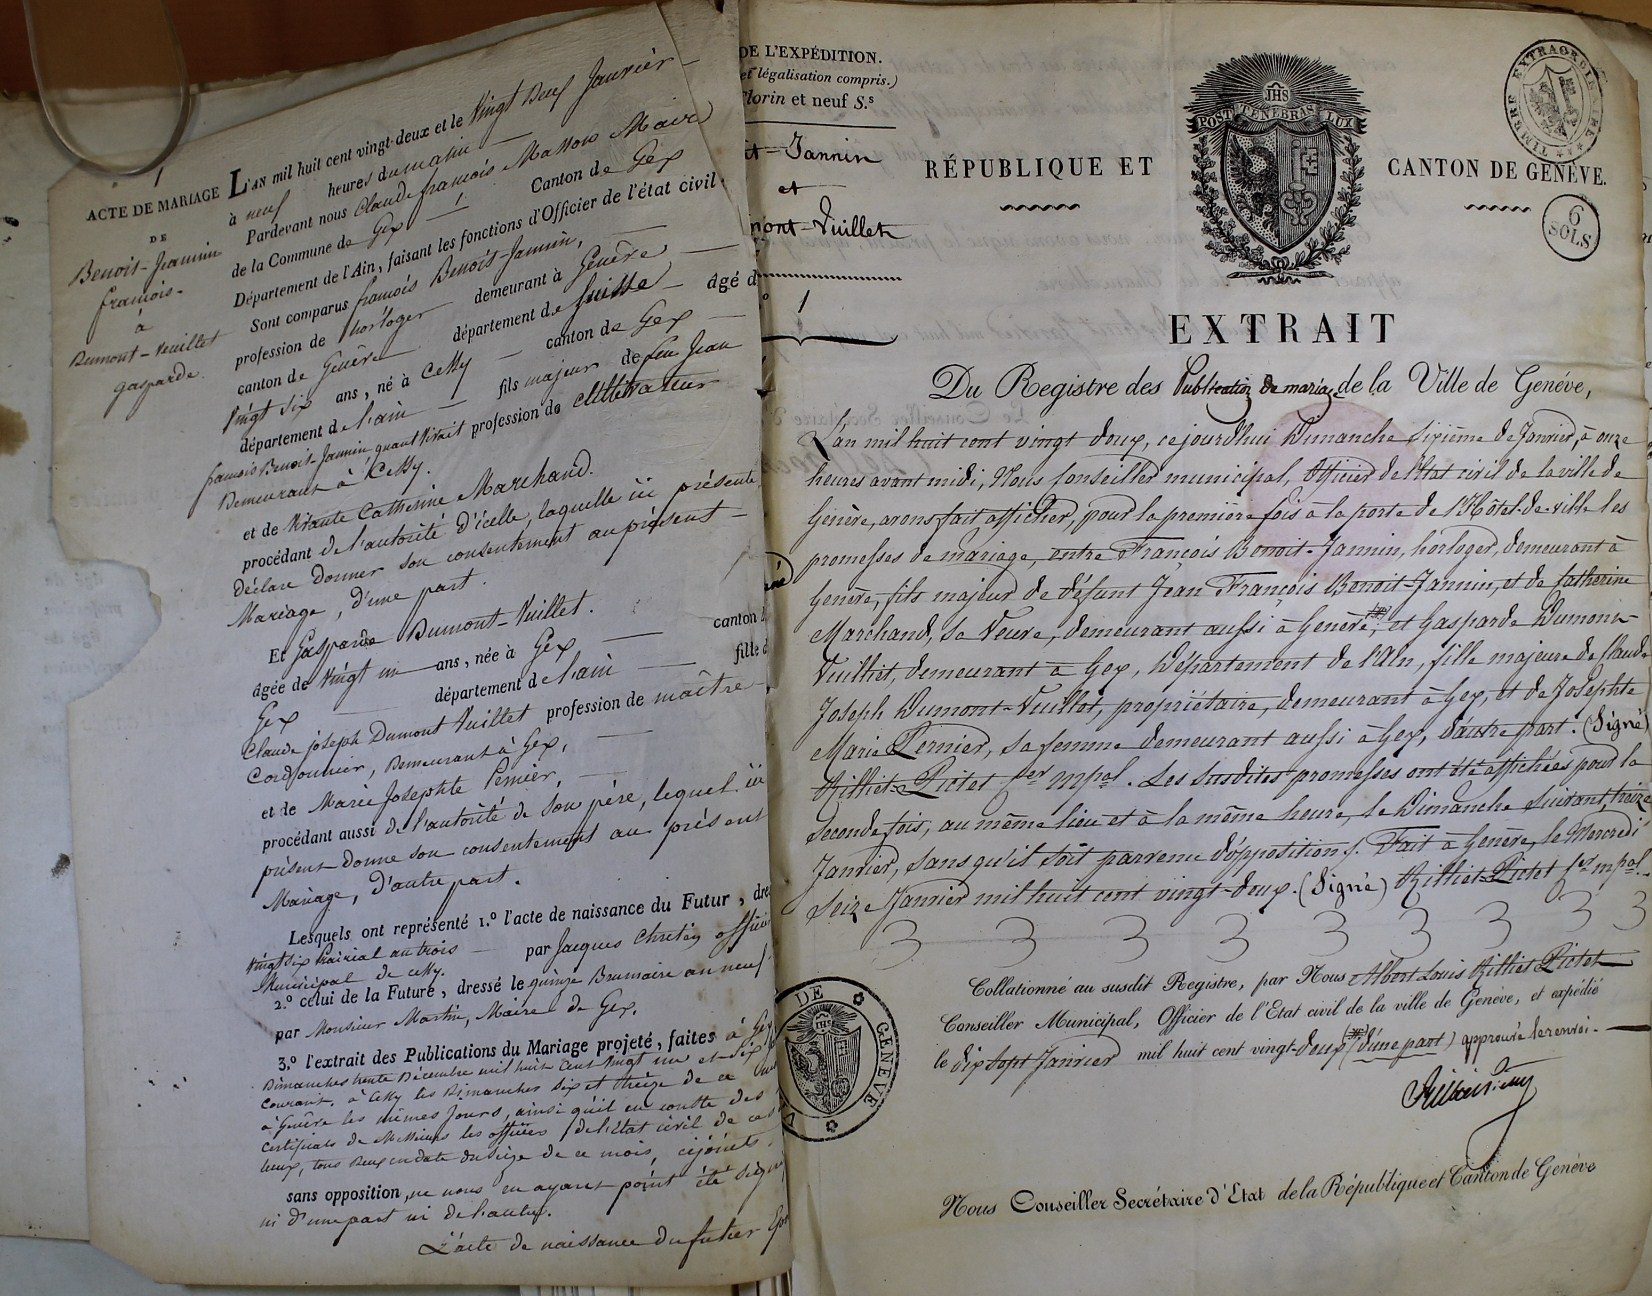 1
ACTE DE MARIAGE
DE
Benoit-Jannin
françois-
à
Dumont-Vuillet
gasparde.
L'AN mil huit cent vingt-deux et le Vingt Deux Janvier
à neuf heures du matin
Pardevant nous Claude françois Masson Maire
de la Commune de Gex Canton de Gex
Département de l'Ain, faisant les fonctions d'Officier de l'état civil.
Sont comparus françois Benoit-Jannin,
profession de horloger demeurant à Genève
canton de Genève département de Suisse âgé d
Vingt six ans, né à Cessy canton de Gex
département de l'ain fils majeur de feu Jean
françois Benoit-Jannin quand Vivait profession de cultivateur
Demeurant à Cessy.
et de Vivante Catherine Marchand.
procédant de l'autorité d'icelle, laquelle ici présente
déclare Donner son consentement au présent
Mariage, d'une part.
Et Gasparde Dumont-Vuillet.
âgée de Vingt un ans, née à Gex canton
Gex département de l'ain fille d
Claude joseph Dumont Vuillet profession de maître
Cordonnier, Demeurant à Gex,
et de Marie Josephte Pernier,
procédant aussi de l'autorité de son père, lequel ici
présent Donne son consentement au présent
Mariage, d'autre part.
Lesquels ont représenté 1.º l'acte de naissance du Futur, dre
Vingt six Prairial an trois par Jacques Chretien officier
Municipal de Cessy.
2.º celui de la Future, dressé le quinze Brumaire an neuf
par Monsieur Martin, Maire de Gex.
3.º l'extrait des Publications du Mariage projeté, faites à Gex
Dimanches trente Décembre mil huit Cent Vingt un et six
courant. à Cessy les Dimanches Six et treize de ce
à Genève les mêmes Jours, ainsi qu'il en conste des
certificats de Messieurs les officiers de l'état civil de ces
lieux, tous Deux en date du seize de ce mois, cijoints
sans opposition, ne nous en ayant point été signi
ni d'une part ni de l'autre.
L'acte de naissance du futur
DE L'EXPÉDITION.
et légalisation compris.)
Florin et neuf S.s
t-Jannin
et
mont-Vuillet
1
RÉPUBLIQUE ET CANTON DE GENÈVE.
JHS
POST TENEBRAS LUX
TIMBRE EXTRAORDINAIRE
6
SOLS
EXTRAIT
Du Registre des Publication de mariage de la Ville de Genève,
L'an mil huit cent vingt deux, cejourd'hui Dimanche sixième de Janvier, à onze
heures avant midi, Nous Conseiller municipal, Officier de l'Etat civil de la ville de
Genève, avons fait afficher, pour la première fois à la porte de l'Hôtel-de-ville les
promesses de mariage, entre François Benoit-Jannin, horloger, demeurant à
Genève, fils majeur de Défunt Jean François Benoit-Jannin, et de Catherine
Marchand, sa Veuve, demeurant aussi à Genève, et Gasparde Dumont-
Vuilliet, demeurant à Gex, Département de l'Ain, fille majeure de Claude
Joseph Dumont-Vuillet, propriétaire, demeurant à Gex, et de Josephte
Marie Pernier, sa femme demeurant aussi à Gex, d'autre part. (Signé)
Rilliet-Pictet Cer mpal. Les susdites promesses ont été affichées pour la
seconde fois, au même lieu et à la même heure, le Dimanche suivant, treize
Janvier, sans qu'il soit parvenu d'oppositions. Fait à Genève, le Mercredi
seize Janvier mil huit cent vingt-deux. (Signé) Rilliet-Pictet Cer mpal.
Collationné au susdit Registre, par Nous Albert Louis Rilliet Pictet
Conseiller Municipal, Officier de l'Etat civil de la ville de Genève, et expédié
le dix sept Janvier mil huit cent vingt-deux (d'une part) approuvé le renvoi.
DE GENÈVE
JHS
Nous Conseiller Secrétaire d'Etat de la République et Canton de Genève